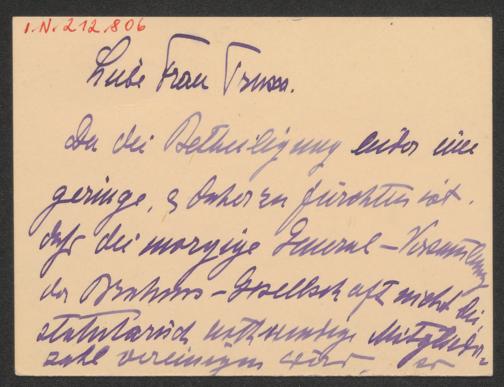 I.N. 212.806
Liebe Frau Truxa.
Da die Betheiligung leider eine
geringe, & daher zu fürchten ist,
daß die morgige General-Versammlung
der Brahms-Gesellschaft nicht die
statutarisch nothwendige Mitglieder-
zahl vereinigen wird, so